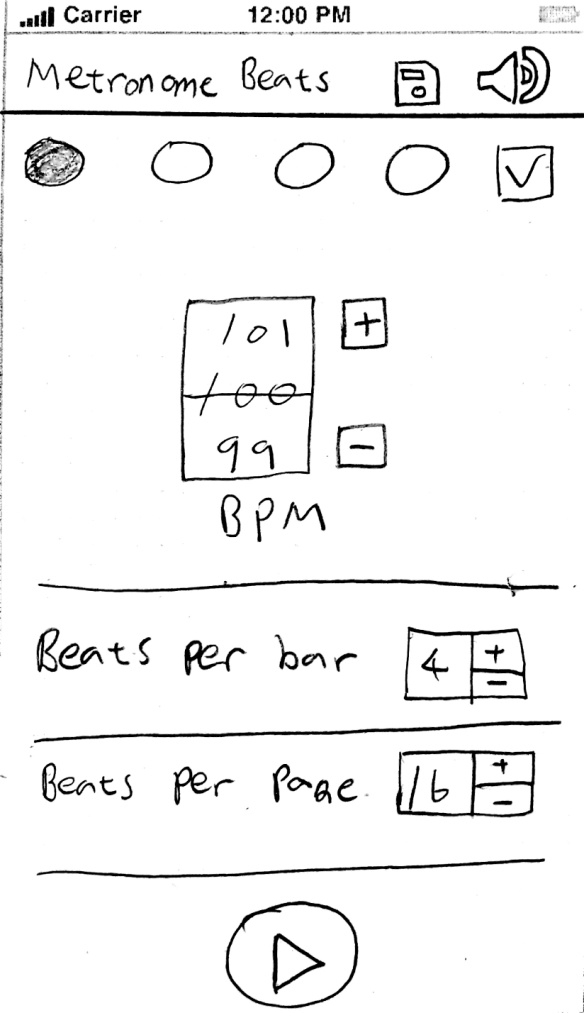 Carrier 12:00 PM
Metronome Beats
101 +
100
99 -
BPM
Beats per bar 4 + -
Beats per Page 16 + -